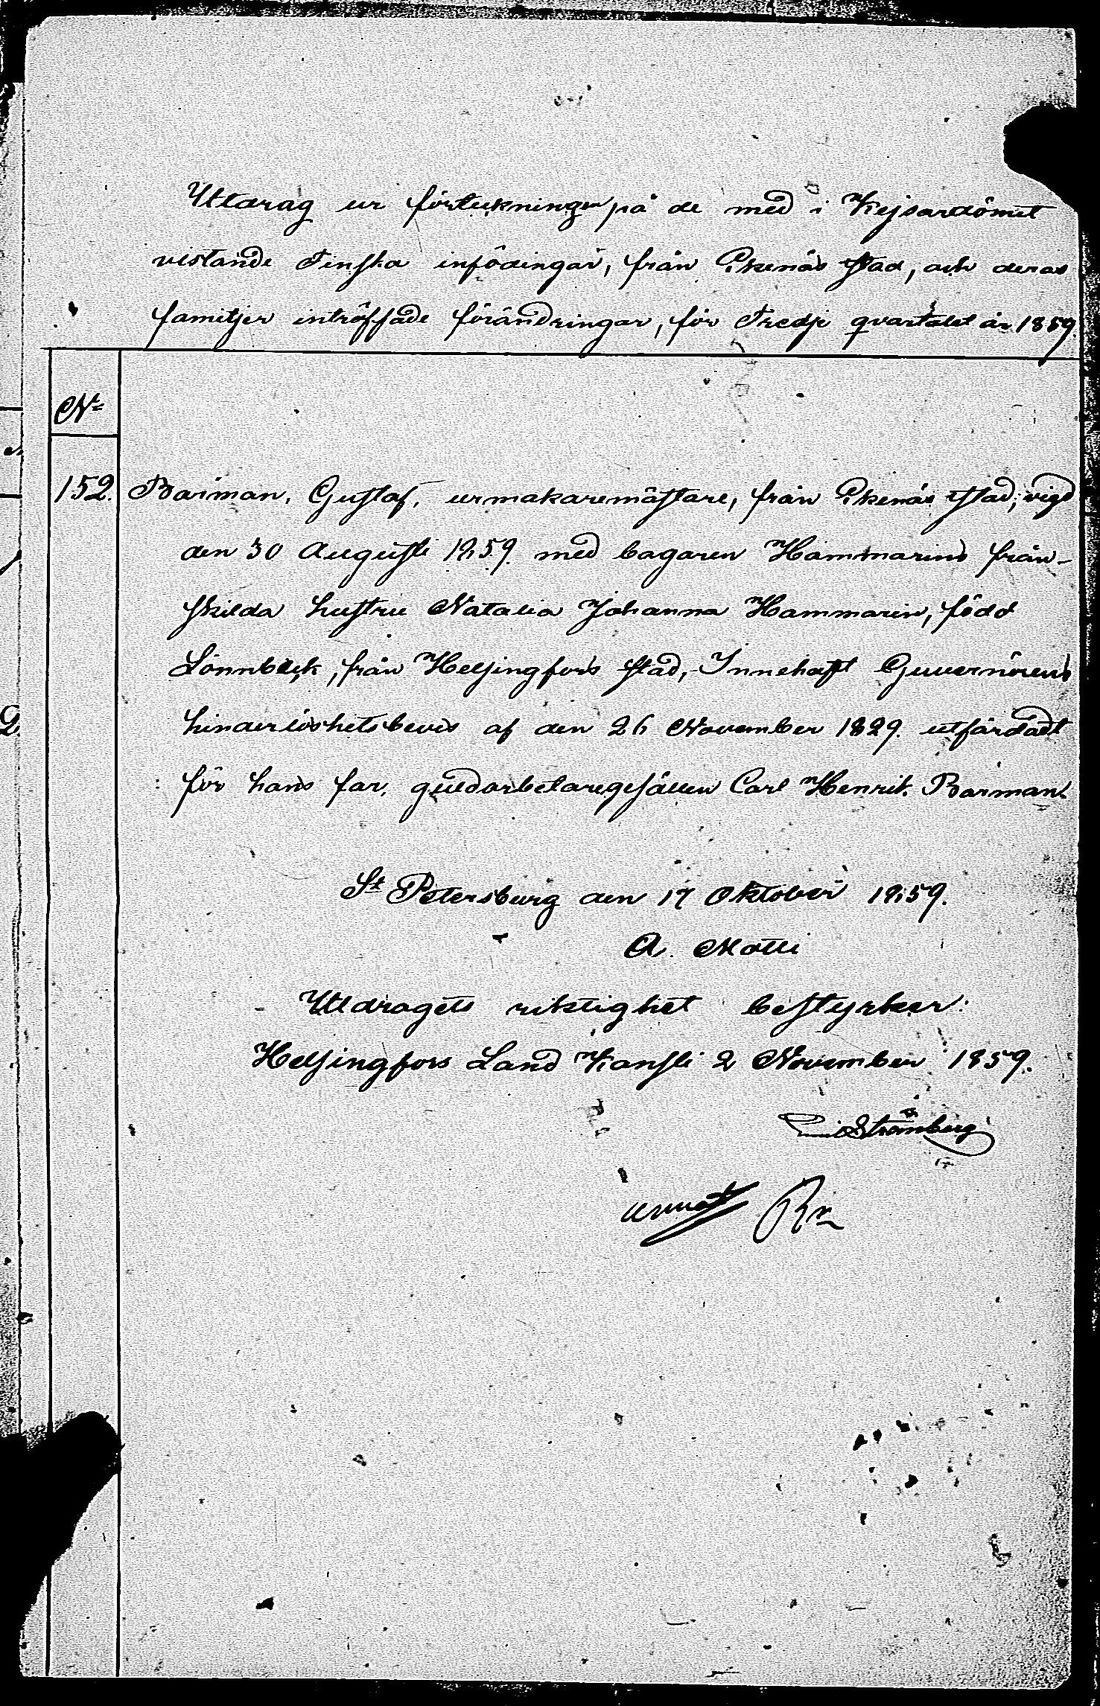 Utdrag ur förteckningen på de med i Kejsardömet
vistande Finska infödingar, från Ekenäs stad, och deras
familjer inträffade förändringar, för Tredje qvartalet år 1859.
No
152. Barman, Gustaf, urmakaremästare, från Ekenäs stad, vigd
den 30 Augusti 1859 med bagaren Hammarins från-
skilda hustru Natalia Johanna Hammarin, född
Lönnbäck, från Helsingfors stad, Innehaft Guvernörens
hinderlöshetsbevis af den 26 November 1829 utfärdadt
för hans far, guldarbetaregesällen Carl Henrik Barman.
St Petersburg den 17 Oktober 1859.
A. Motti
Utdragets riktighet bestyrker:
Helsingfors Land Kansli 2 November 1859.
Emil Strömberg